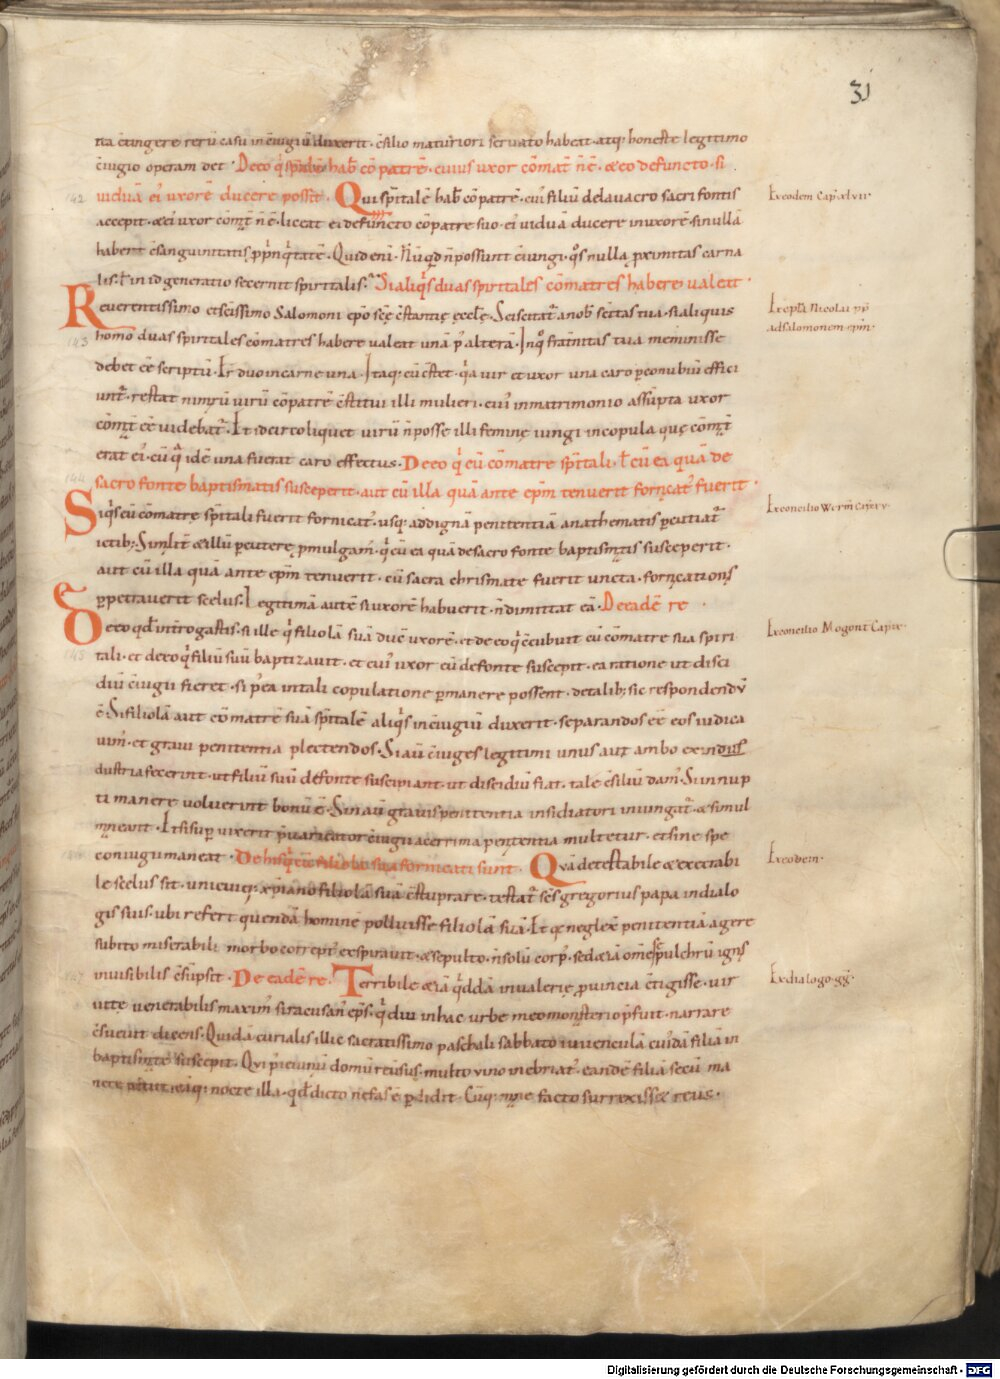 31
ria c̄tingere rerū casu in c̄iugiū duxerit · c̄silio maturiori servato habeat · atq; honeste legitimo
c̄iugio operam det · De eo q̄ sp̄italē hab& cōpatrē · cuius uxor cōmat̄ n̄ ē · & eo defuncto · si
142 viduā ei' uxorē ducere possit · Qui sp̄italē hab& cōpatrē · cui' filiū de lavacro sacri fontis
Ex eodem Cap · xlvii ·
accepit · & ei' uxor cōmat̄ n̄ ē · liceat ei defuncto cōpatre suo · ei' viduā ducere in uxorē · si nullā
habent c̄sanguinitatis p̄pinq̄tatē · Quid eni · Nūqd n̄ possunt c̄iungi · q̄s nulla proximitas carna
lis · t̄ in id generatio secernit spiritalis · Si aliq̄s duas spiritales cōmatres habere valeat ·
Reverentissimo et sc̄issimo Salomoni ep̄o sc̄ę c̄stantię ęccl̄ę · Sciscitat̄ a nob̄ sc̄itas tua · si aliquis
Ex epl̄a Nicolai pp̄
ad salomonem ep̄m ·
143 homo duas spiritales cōmatres habere valeat unā p' alterā · In q° fr̄atnitas tua meminisse
debet eē scriptū · Er duo in carne una · Itaq; cū c̄stet · q̄a vir et uxor una caro p conubiū effici
unt̄ · restat nimirū virū cōpatrē c̄stitui illi mulieri · cui' in matrimonio assūpta uxor
cōmat̄ eē videbat̄ · Et idcirco liquet virū n̄ posse illi feminę iungi in copula quę cōmat̄
erat ei' · cū q̄ idē una fuerat caro effectus · De eo q̄ cū cōmatre sp̄itali · t̄ cū ea quā de
144 sacro fonte baptismatis susceperit · aut cū illa quā ante ep̄m tenuerit fornicat' fuerit ·
Siq̄s cū cōmatre sp̄itali fuerit fornicat' · usq; ad dignā penitentiā anathematis pcutiat̄
Ex concilio Worm̄ Cap · xv ·
ictib; Similit̄ & illū pcutere p̄mulgam' · q̄ cū ea quā de sacro fonte baptismatis susceperit ·
aut cū illa quā ante ep̄m tenuerit · cū sacra chrismate fuerit uncta · fornicationis
ppetraverit scelus · Legitimā autē si uxorē habuerit · n̄ dimittat eā · De eadē re ·
De eo qd̄ interrogastis · si ille q̄ filiolā suā duc̄ uxorē · et de eo q̄ c̄cubuit cū cōmatre sua spiri
Ex concilio Mogont̄ Cap
145 tali · et de eo q̄ filiū suū baptizavit · et cui' uxor eū de fonte suscepit · ea ratione ut disci
diū c̄iugii fieret · si p'ea in tali copulatione pmanere possent · de talib; sic respondendū
ē · Si filiolā aut cōmatrē suā sp̄italē aliq̄s in c̄iugiū duxerit · separandos eē eos iudica
vim' · et gravi penitentia plectendos · Si aū c̄iuges legitimi unus aut ambo ex indus
dustria fecerint · ut filiū suū de fonte suscipiant · ut discidiū fiat · tale c̄siliū dam' · Si innup
ti manere voluerint bonū ē · Sin aū gravis penitentia insidiatori iniungat̄ · & simul
maneant · Et si supvixerit p̄varicator c̄iugii acerrima penitentia multetur · et sine spe
coniugii maneat · De his q̄ cū filiola sua fornicati sunt · Quā detestabile & execrabi
Ex eodem ·
le scelus sit · unicuiq; xp̄iano filiolā suā c̄stuprare · testat̄ sc̄s gregorius papa in dialo
gis suis · ubi refert quendā hominē polluisse filiolā suā · Et q neglexit penitentiā agere
subito miserabili morbo corrept' exspiravit · & sepulto · n̄ solū corp' · sed & iā om̄e sepulchrū ignis
147 invisibilis c̄supsit · De eadē re · Terribile & iā q̄ddā in valerię pvincia c̄tigisse · vir
Ex dialogo · gḡ ·
vitę venerabilis maxim' siracusan' ep̄s · q̄ diu in hac urbe meo monasterio p̄fuit · narrare
c̄suevit dicens · Quidā curialis illic sacratissimo paschali sabbato iuvenculā cui'dā filiā in
baptismate suscepit · Qui p' ieiuniū domū reūsus · multo vino inebriat' · eandē filiā secū ma
nere petiit · eāq; nocte illa · qd̄ dictu nefas ē pdidit · Cūq; mane facto surrexiss& reus ·
Digitalisierung gefördert durch die Deutsche Forschungsgemeinschaft · DFG